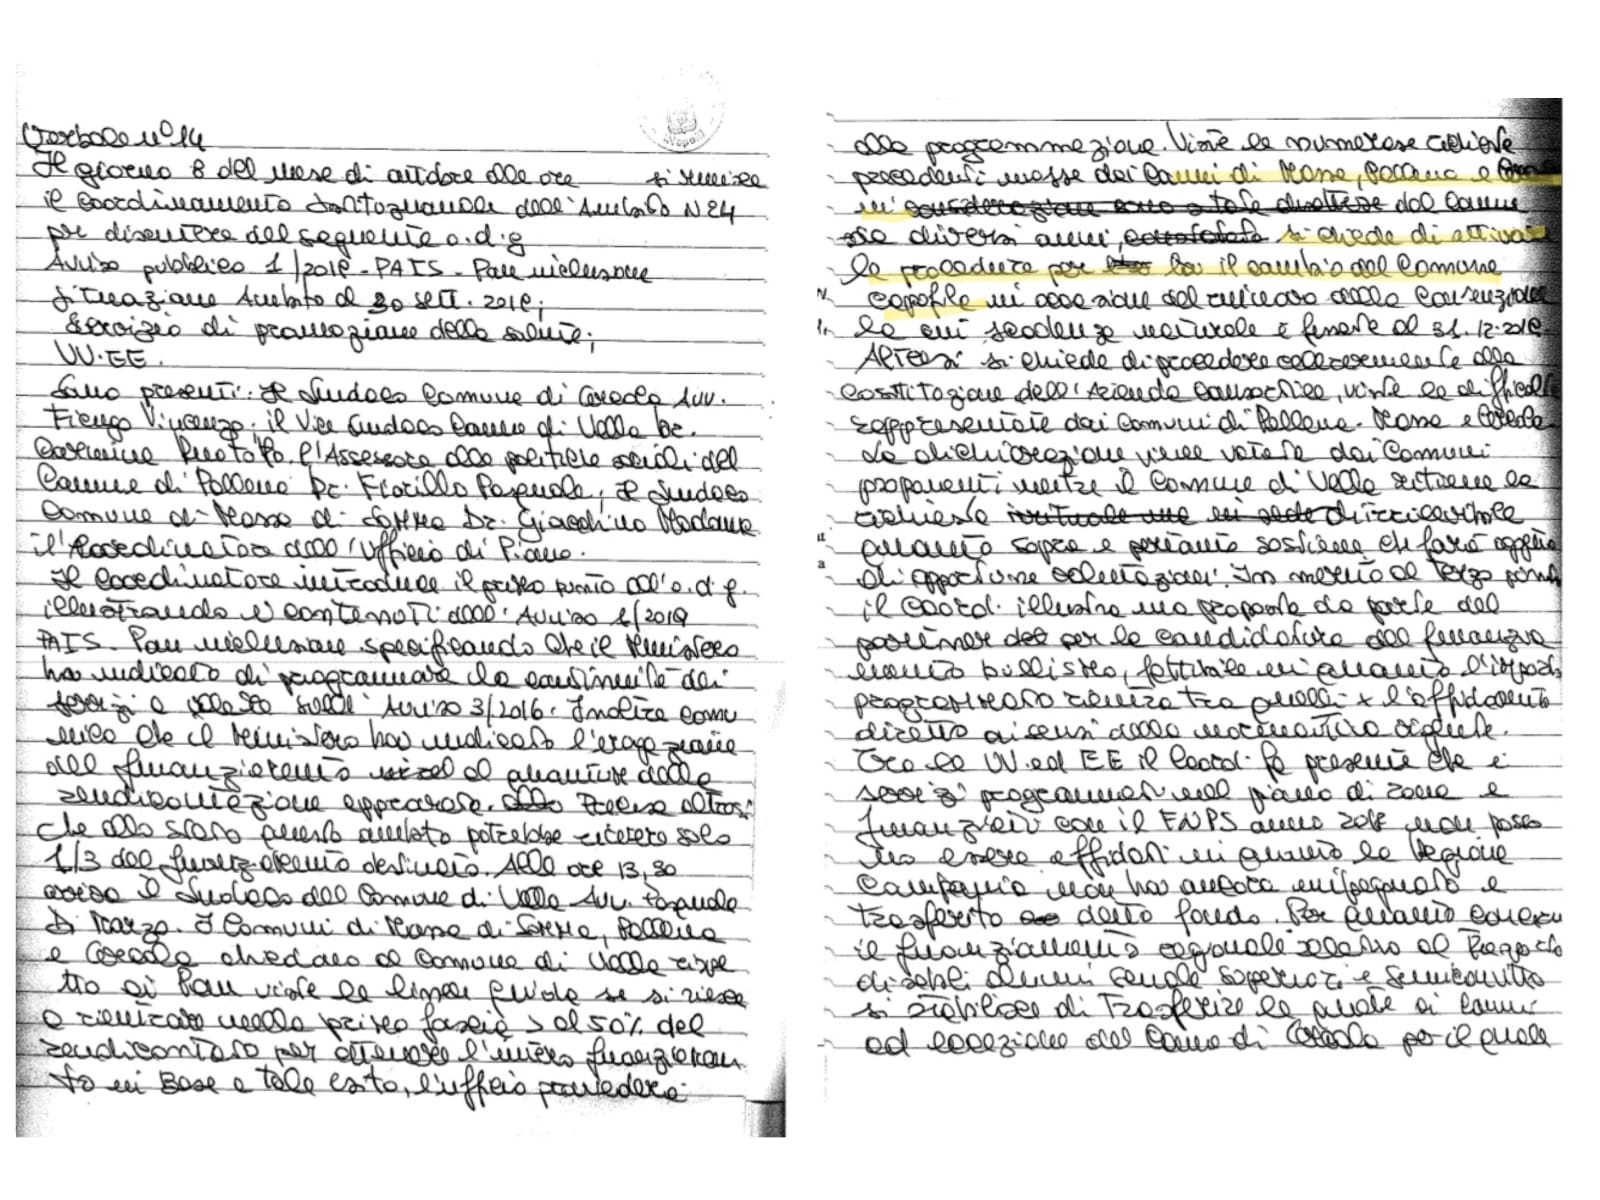 Verbale n° 14
Il giorno 8 del mese di ottobre alle ore si riunisce
il Coordinamento Istituzionale dell'Ambito N24
per discutere del seguente o.d.g
Avviso pubblico 1/2019 - PAIS - Pon inclusione
situazione Ambito al 30 sett. 2019;
Servizio di promozione della salute;
VV.EE.
Sono presenti: Il Sindaco Comune di Cercola Avv.
Fiengo Vincenzo, il Vice Sindaco Comune di Volla
l'Assessore alle politiche sociali del
Comune di Pollena Dr. Fiorillo Pasquale, Il Sindaco
Comune di Massa di Somma Dr. Gioacchino Madonna
il Coordinatore dell'Ufficio di Piano.
Il Coordinatore introduce il primo punto all'o.d.g.
illustrando i contenuti dell'Avviso 1/2019
PAIS - Pon inclusione specificando che il Ministero
ha indicato di programmare la continuità dei
servizi a valere sull'Avviso 3/2016. Inoltre comu
nica che il Ministero ha indicato l'erogazione
del finanziamento al quantum della
rendicontazione approvata. Precisa altresì
che allo stato questo ambito potrebbe ricevere solo
1/3 del finanziamento destinato. Alle ore 13,30
arriva il Sindaco del Comune di Volla Avv. Pasquale
Di Marzo. I Comuni di Massa di Somma, Pollena
e Cercola chiedono al Comune di Volla rispe
tto ai Pon viste le linee guida se si riesce
a rientrare nella prima fascia > al 50% del
rendicontato per ottenere l'intero finanziamen
to in Base a tale esito, l'ufficio provvederà
alla programmazione. Viste le numerose richieste
precedenti mosse dai Comuni di Massa, Pollena e
in considerazione sono a tale direttive dal Comune
da diversi anni, si chiede di attivare
le procedure per il cambio del Comune
Capofila in occasione del rinnovo della Convenzione
la cui scadenza naturale è fissata al 31.12.2019
Altresì si chiede di procedere celermente alla
costituzione dell'Azienda Consortile, viste le difficoltà
rappresentate dai Comuni di Pollena - Massa e Cercola
La dichiarazione viene votata dai Comuni
proponenti mentre il Comune di Volla ritiene la
richiesta irricevibile
quanto sopra e pertanto sostiene che farà oggetto
di opportune valutazioni. In merito al terzo punto
il Coord. illustra una proposta da parte del
partner per la candidatura del finanzia
mento bullismo, fattibile in quanto l'importo
programmato rientra tra quelli x l'affidamento
diretto ai sensi della normativa vigente.
Tra le VV ed EE il Coord. fa presente che i
servizi programmati nel piano di zona e
finanziati con il FNPS anno 2018 non posso
no essere affidati in quanto la Regione
Campania non ha ancora impegnato e
trasferito detto fondo. Per quanto concerne
il finanziamento regionale relativo al Trasporto
disabili alunni scuole superiori e semiconvitto
si stabilisce di trasferire le quote ai Comuni
ad eccezione del Comune di Cercola per il quale